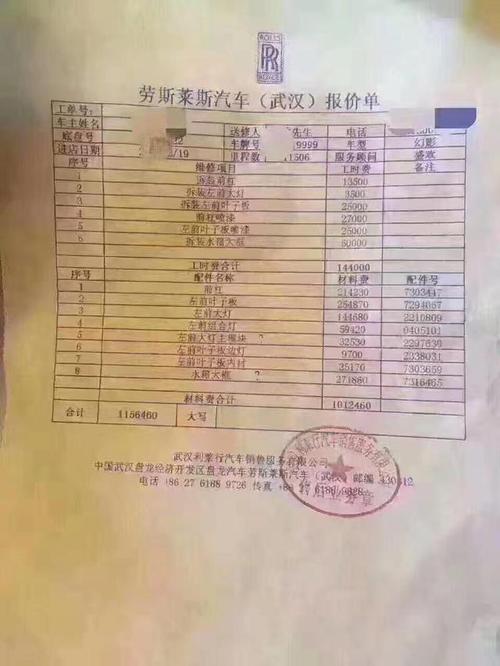 ROLLS
RR
ROYCE
劳斯莱斯汽车（武汉）报价单
工单号:
车主姓名 送修人 先生 电话
底盘号 车牌号 9999 车型 幻影
进店日期 /19 里程数 1506 服务顾问 盛欢
序号 维修项目 工时费 备注
1 拆装前杠 13500
2 拆装左前大灯 3500
3 拆装左前叶子板 25000
4 前杠喷漆 27000
5 左前叶子板喷漆 25000
6 拆装水箱大框 50000
工时费合计 144000
序号 配件名称 材料费 配件号
1 前杠 214230 7303447
2 左前叶子板 254870 7294067
3 左前大灯 144680 2210809
4 左前组合灯 59420 0405101
5 左前大灯主模块 ? 32530 2297639
6 左前叶子板边灯 9700 2338031
7 左前叶子板内衬 25170 7303659
8 水箱大框 ? 271860 7316465
材料费合计 1012460
合计 1156460 大写
武汉利泰行汽车销售服务有限公司
中国武汉盘龙经济开发区盘龙汽车劳斯莱斯汽车（武汉）邮编 430312
电话 +86 27 6168 9726 传真 +86